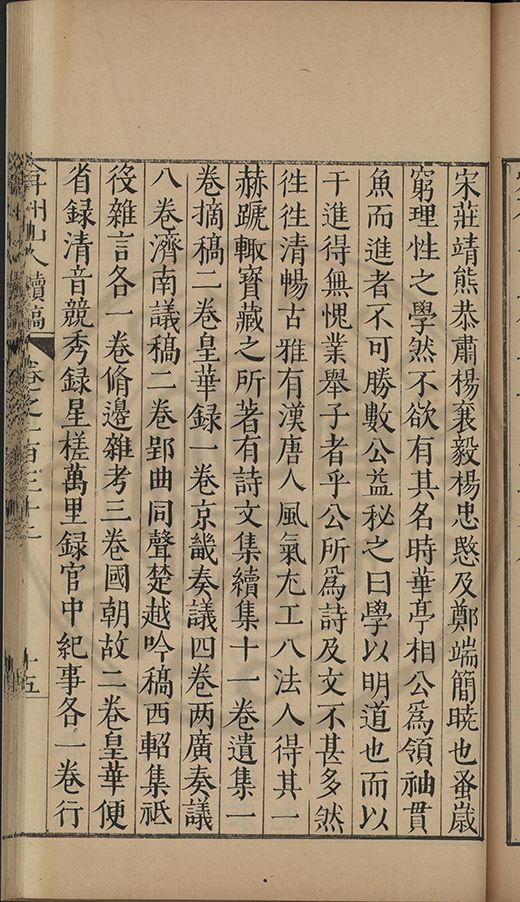 宋莊靖熊恭肅楊襄毅楊忠愍及鄭端簡曉也蚤歲
窮理性之學然不欲有其名時華亭相公爲領袖貫
魚而進者不可勝數公益秘之曰學以明道也而以
干進得無愧業舉子者乎公所爲詩及文不甚多然
徃徃清暢古雅有漢唐人風氣尤工八法人得其一
赫蹏輙寳藏之所著有詩文集續集十一卷遺集一
卷摘稿二卷皇華録一卷京畿奏議四卷两廣奏議
八卷濟南議稿二卷郢曲同聲楚越吟稿西軺集祗
役雜言各一卷脩邊雜考三卷國朝故二卷皇華便
省録清音競秀録星槎萬里録官中紀事各一卷行
弇州山人續稿
卷之一百三十二
十五